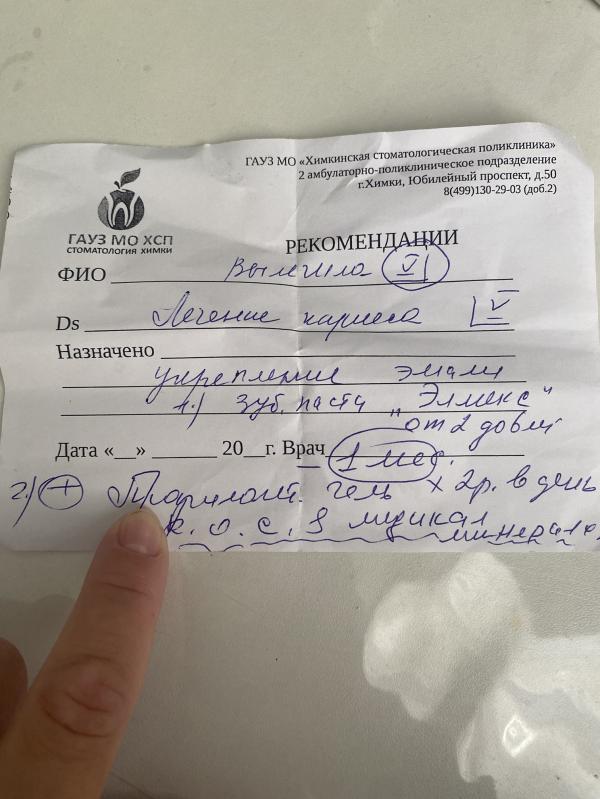 ГАУЗ МО «Химкинская стоматологическая поликлиника»
2 амбулаторно-поликлиническое подразделение
г.Химки, Юбилейный проспект, д.50
8(499)130-29-03 (доб.2)
ГАУЗ МО ХСП
СТОМАТОЛОГИЯ ХИМКИ
РЕКОМЕНДАЦИИ
ФИО Вылечила V
Ds Лечение кариеса V
Назначено
укрепление эмали
1.) зуб. паста „Элмекс"
от 2 до 6 лет
Дата «__» ______ 20__г. Врач 1 мес.
2.) + гель х 2р. в день
R.O.C.S медикал
минералс